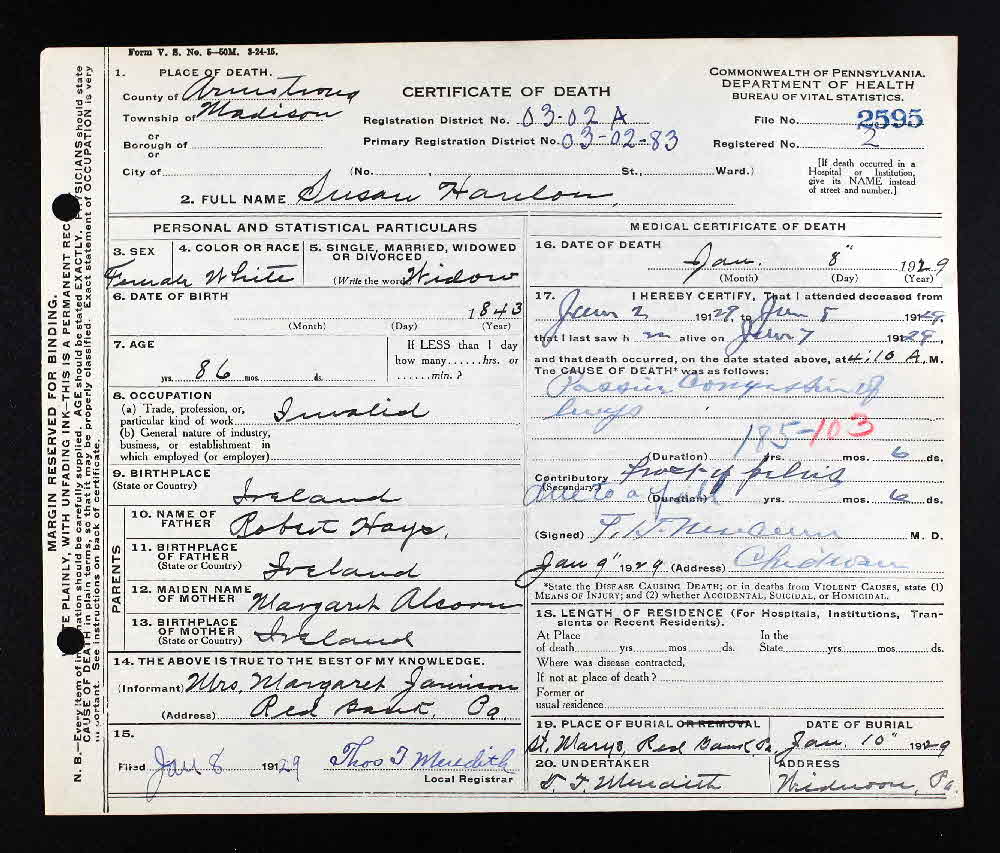 Form V. S. No. 5—50M. 3-24-15.
1. PLACE OF DEATH.
County of Armstrong
Township of Madison
or
Borough of
or
City of
CERTIFICATE OF DEATH
Registration District No. 03-02 A
Primary Registration District No. 03-02-83
(No. , St., Ward.)
COMMONWEALTH OF PENNSYLVANIA.
DEPARTMENT OF HEALTH
BUREAU OF VITAL STATISTICS.
File No. 2595
Registered No. 2
[If death occurred in a
Hospital or Institution,
give its NAME instead
of street and number.]
2. FULL NAME Susan Hanlon
PERSONAL AND STATISTICAL PARTICULARS
3. SEX
Female
4. COLOR OR RACE
White
5. SINGLE, MARRIED, WIDOWED
OR DIVORCED
(Write the word) Widow
6. DATE OF BIRTH
1843
(Month) (Day) (Year)
7. AGE
86
yrs. mos. ds.
If LESS than 1 day
how many......hrs. or
......min.?
8. OCCUPATION
(a) Trade, profession, or,
particular kind of work Invalid
(b) General nature of industry,
business, or establishment in
which employed (or employer)
9. BIRTHPLACE
(State or Country)
Ireland
PARENTS
10. NAME OF
FATHER Robert Hays.
11. BIRTHPLACE
OF FATHER
(State or Country) Ireland
12. MAIDEN NAME
OF MOTHER Margaret Alcorn
13. BIRTHPLACE
OF MOTHER
(State or Country) Ireland
14. THE ABOVE IS TRUE TO THE BEST OF MY KNOWLEDGE.
(Informant) Mrs. Margaret Jamison
(Address) Red Bank, Pa.
15.
Filed Jan 8 19129 Thos T Meredith
Local Registrar
MEDICAL CERTIFICATE OF DEATH
16. DATE OF DEATH
Jan. 8" 1929
(Month) (Day) (Year)
17. I HEREBY CERTIFY, That I attended deceased from
Jan 2 19129, to Jan 8 19129,
that I last saw h alive on Jan 7 19129,
and that death occurred, on the date stated above, at 4:10 A.M.
The CAUSE OF DEATH* was as follows:
Passive Congestion of
lungs
185-103
(Duration) yrs. mos. 6 ds.
Contributory
(Secondary) of pelvis
due to a fall
(Duration) yrs. mos. 6 ds.
(Signed) M. D.
Jan 9" 1929 (Address)
*State the DISEASE CAUSING DEATH; or in deaths from VIOLENT CAUSES, state (1)
MEANS OF INJURY; and (2) whether ACCIDENTAL, SUICIDAL, or HOMICIDAL.
18. LENGTH OF RESIDENCE (For Hospitals, Institutions, Transients or Recent Residents).
At Place
of death yrs. mos. ds.
In the
State yrs. mos. ds.
Where was disease contracted,
If not at place of death?
Former or
usual residence
19. PLACE OF BURIAL OR REMOVAL
St. Marys, Red Bank Pa
DATE OF BURIAL
Jan. 10" 1929
20. UNDERTAKER
T. Meredith
ADDRESS
Widnoon, Pa.
MARGIN RESERVED FOR BINDING.
TE PLAINLY, WITH UNFADING INK—THIS IS A PERMANENT REC
N. B.—Every item of in mation should be carefully supplied. AGE should be stated EXACTLY. PHYSICIANS should state
CAUSE OF DEATH in plain terms, so that it may be properly classified. Exact statement of OCCUPATION is very
important. See instructions on back of certificate.